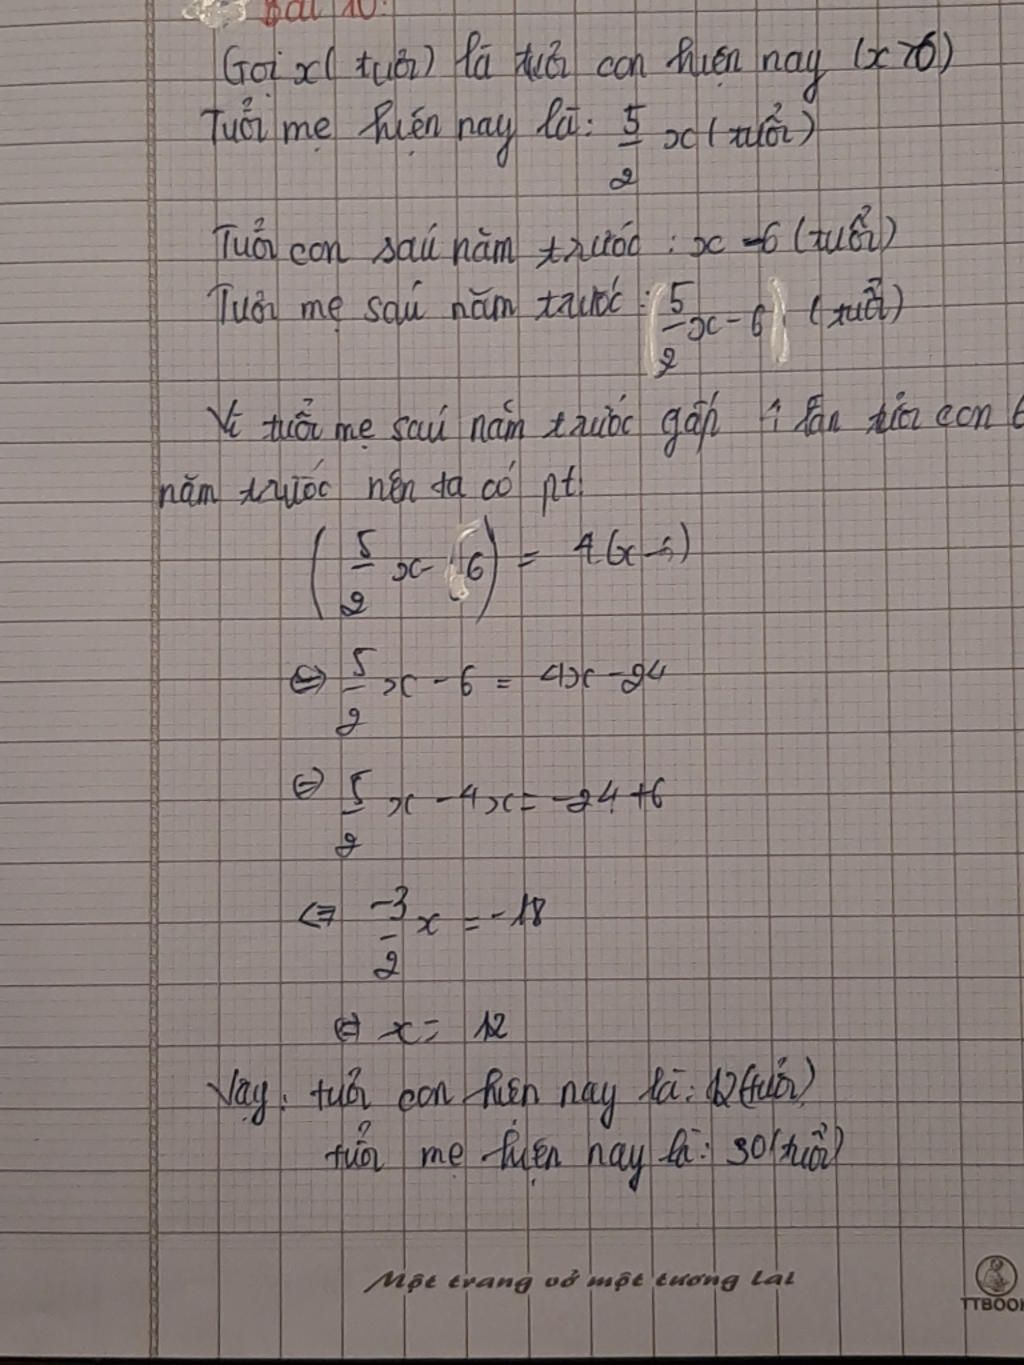 Bài 10:
Gọi x( tuổi) là tuổi con hiện nay (x>6)
Tuổi mẹ hiện nay là: 5/2 x (tuổi)
Tuổi con sáu năm trước : x - 6 (tuổi)
Tuổi mẹ sáu năm trước: (5/2 x - 6) (tuổi)
Vì tuổi mẹ sáu năm trước gấp 4 lần tuổi con 6
năm trước nên ta có pt:
(5/2 x - 6) = 4(x-6)
⇔ 5/2 x - 6 = 4x - 24
⇔ 5/2 x - 4x = -24 + 6
⇔ -3/2 x = -18
⇔ x = 12
Vậy: tuổi con hiện nay là: 12(tuổi)
tuổi mẹ hiện nay là: 30(tuổi)
Một trang vở một tương lai
TTBOOK